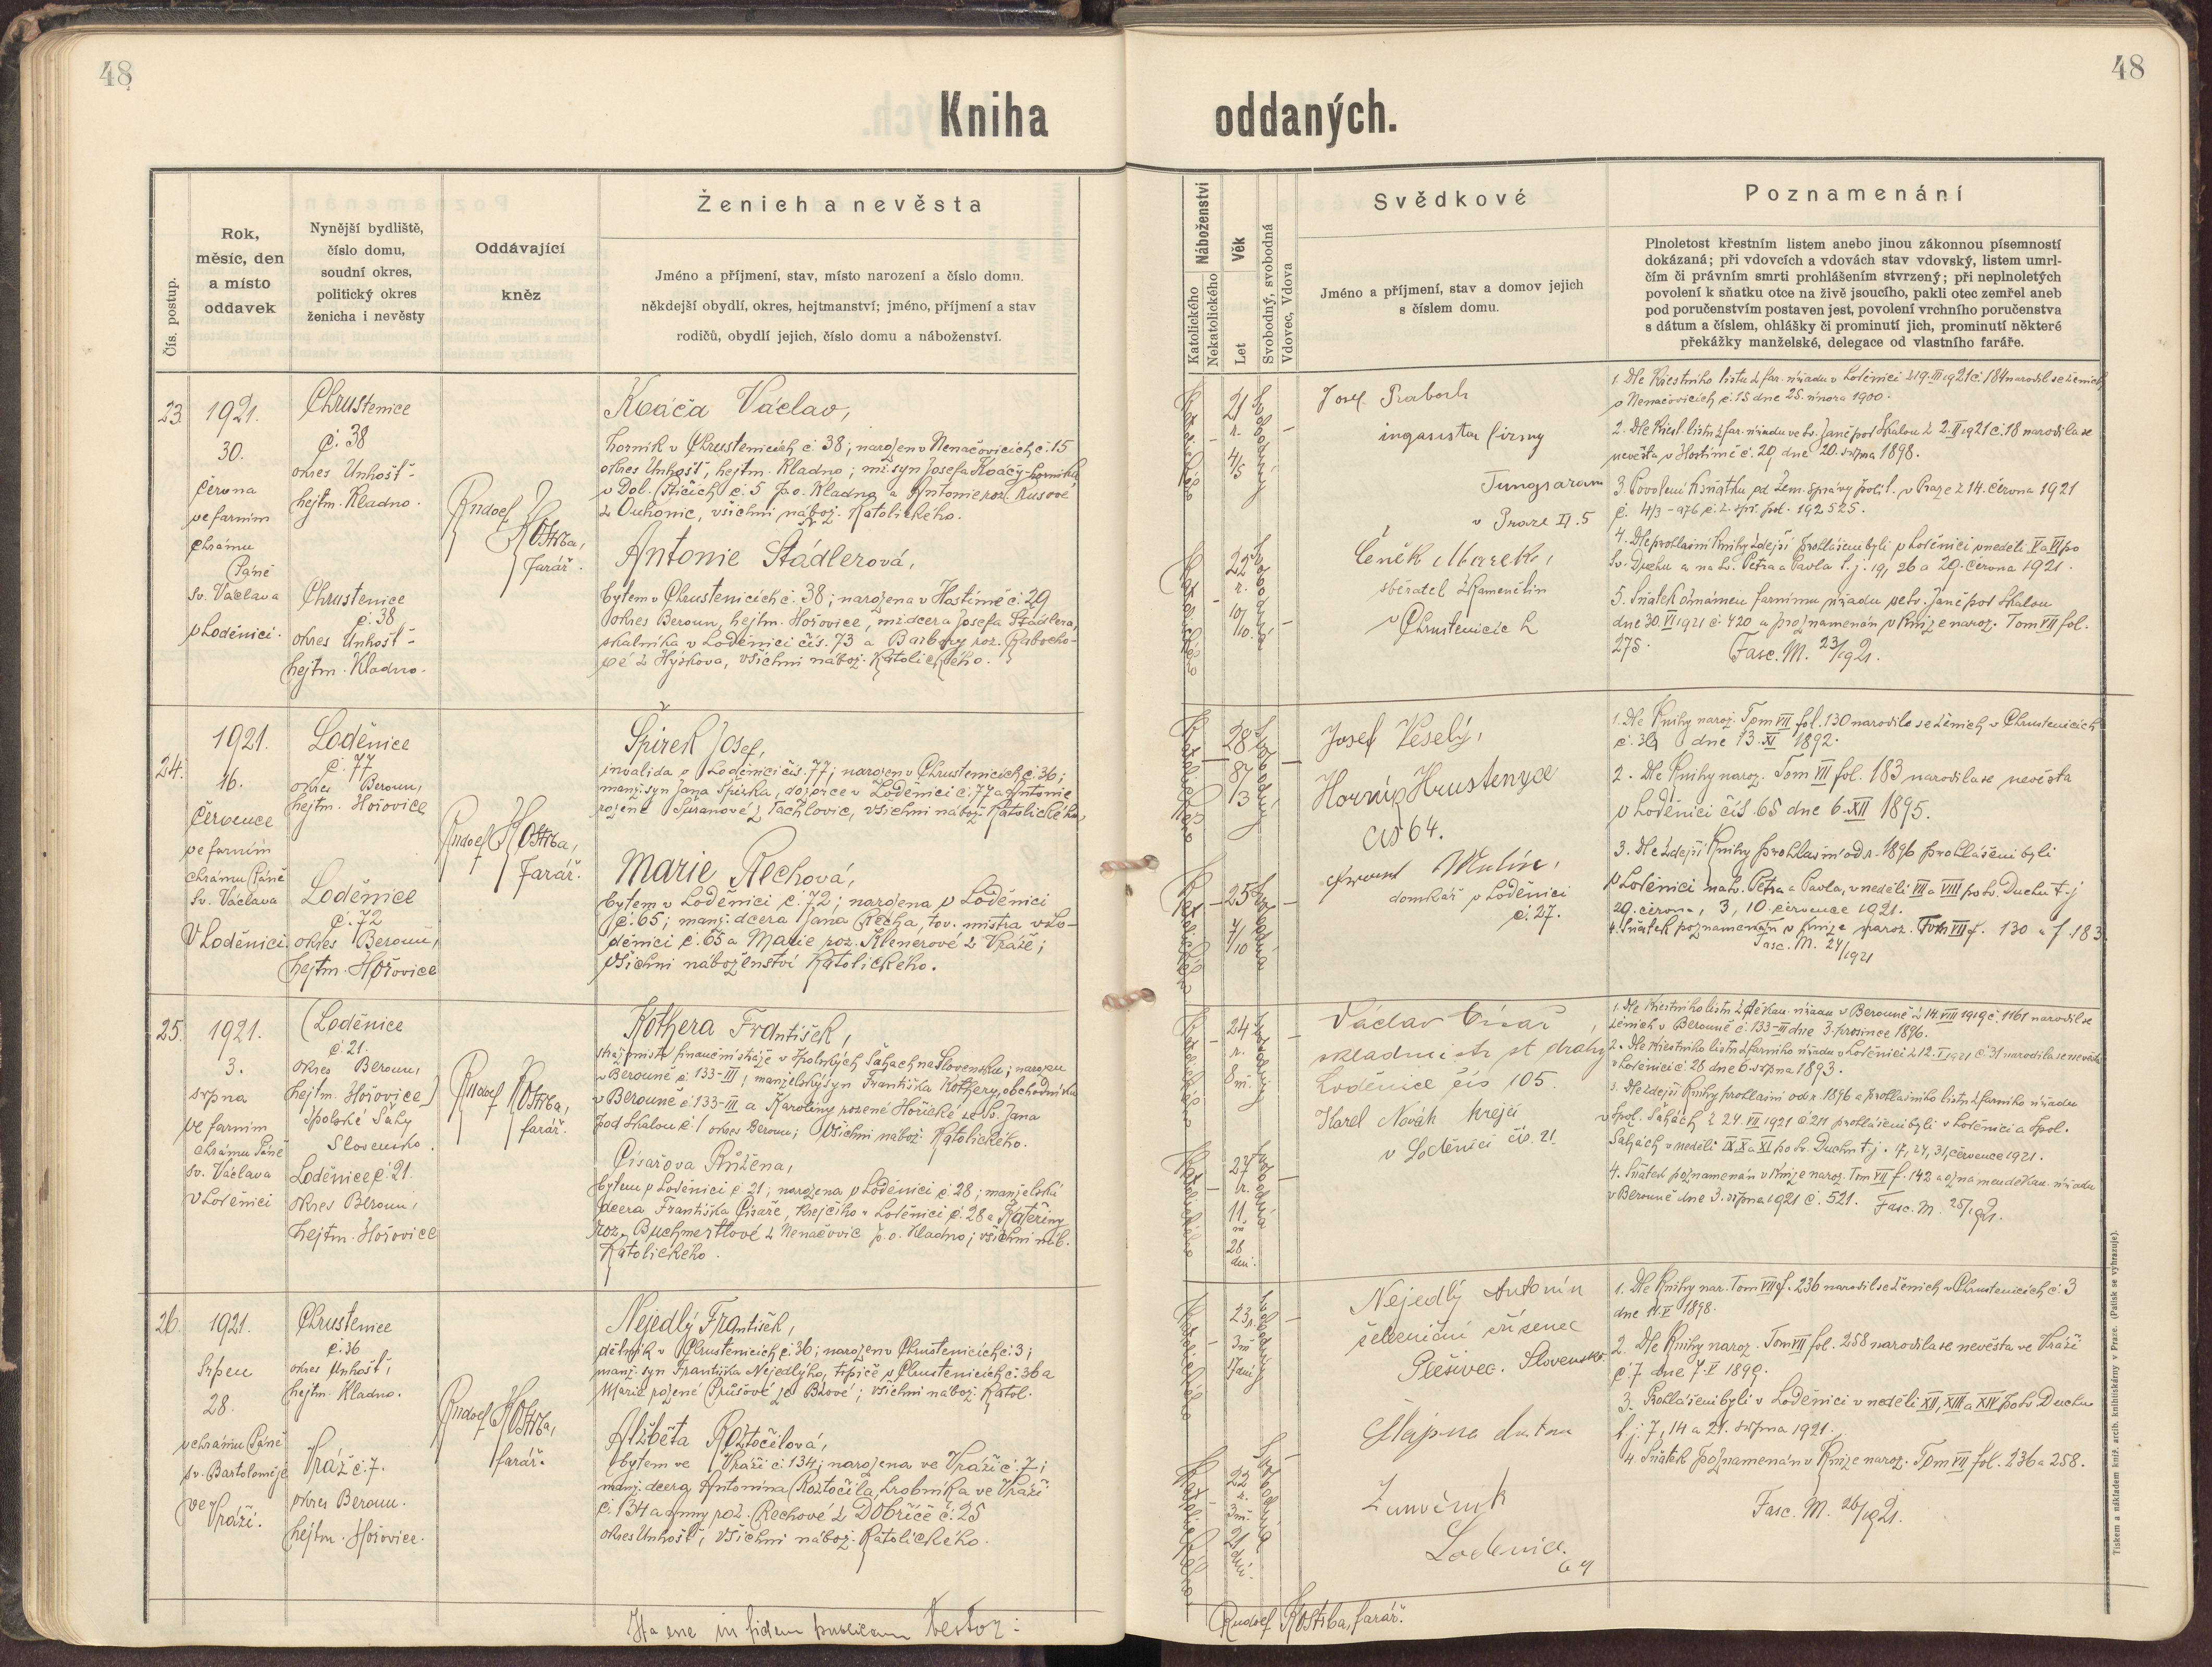 48
48
Kniha oddaných.
Čís. postup.
Rok,
měsíc, den
a místo
oddavek
Nynější bydliště,
číslo domu,
soudní okres,
politický okres
ženicha i nevěsty
Oddávající
kněz
Ženich a nevěsta
Jméno a příjmení, stav, místo narození a číslo domu.
někdejší obydlí, okres, hejtmanství; jméno, příjmení a stav
rodičů, obydlí jejich, číslo domu a náboženství.
Náboženství
Katolického
Nekatolického
Věk
Let
Svobodný, svobodná
Vdovec, Vdova
Svědkové
Jméno a příjmení, stav a domov jejich
s číslem domu.
Poznamenání
Plnoletost křestním listem anebo jinou zákonnou písemností
dokázaná; při vdovcích a vdovách stav vdovský, listem umrl-
čím či právním smrti prohlášením stvrzený; při neplnoletých
povolení k sňatku otce na živě jsoucího, pakli otec zemřel aneb
pod poručenstvím postaven jest, povolení vrchního poručenstva
s dátum a číslem, ohlášky či prominutí jich, prominutí některé
překážky manželské, delegace od vlastního faráře.
23.
1921.
30.
června
ve farním
chrámu
Páně
sv. Václava
v Loděnici.
Chrustenice
č. 38
okres Unhošť-
hejtm. Kladno.
Chrustenice
č. 38
okres Unhošť-
hejtm. Kladno.
Rudolf Kostrba,
farář.
Kváča Václav,
horník v Chrustenicích č. 38; narozen v Nenačovicích č. 15
okres Unhošť, hejtm. Kladno; mž. syn Josefa Kváčy horníka
v Dol. č. 5 p.o. Kladno a Antonie roz. Kusové
z Ouhonic, všichni nábož. Katolického.
Antonie Stádlerová,
bytem v Chrustenicích č. 38; narozena v Hostimě č. 29
okres Beroun, hejtm. Hořovice, mž. dcera Josefa Stádlera,
skalníka v Loděnici čís. 73 a Barbory roz.
z Hýskova, všichni nábož. Katolického.
21
r.
4/5
22
r.
10/10.
Josef
firmy
Tungsaram
v Praze II. 5
Čeněk Marek,
sběratel
v Chrustenicích
1. Dle křestního listu z far. úřadu v Loděnici z 19. III 1921 č. 184 narodil se ženich
v Nenačovicích č. 15 dne 25. února 1900.
2. Dle křest. listu z far. úřadu ve Sv. Janě pod Skalou z 2. II 1921 č. 18 narodila se
nevěsta v Hostimě č. 29 dne 20. srpna 1898.
3. Povolení k sňatku od zem. správy polit. v Praze z 14. června 1921
192525.
4. Dle prohlašní knihy zdejší prohlášeni byli v Loděnici v neděli V a VI po
Sv. Duchu a na Sv. Petra a Pavla t. j. 19, 26 a 29. června 1921.
5. Sňatek oznámen farnímu úřadu ve Sv. Janě pod Skalou
dne 30. VI 1921 č. 420 a poznamenán v knize naroz. Tom VII fol.
275. Fasc. M. 23/1921.
24.
1921.
16.
července
ve farním
chrámu Páně
sv. Václava
v Loděnici.
Loděnice
č. 77
okres Beroun,
hejtm. Hořovice
Loděnice
č. 72
okres Beroun,
hejtm. Hořovice
Rudolf Kostrba,
farář.
Špírek Josef,
invalida v Loděnici čís. 77; narozen v Chrustenicích č. 36;
manž. syn Jana Špírka, dozorce v Loděnici č. 77 a Antonie
rozené z Tachlovic, všichni nábož. Katolického
Marie Řechová,
bytem v Loděnici č. 72; narozena v Loděnici
č. 65; manž. dcera Jana Řecha, tov. mistra v Lo-
děnici č. 65 a Marie roz. Klenerové z Vráže;
všichni náboženství Katolického.
28
8/3
25
7/10
Josef Veselý,
Horník Hrustenyce
čís 64.
Mulín,
domkář v Loděnici
č. 27.
1. Dle knihy naroz. Tom VII fol. 130 narodil se ženich v Chrustenicích
dne 13. XI 1892.
2. Dle knihy naroz. Tom VII fol. 183 narodila se nevěsta
v Loděnici čís. 65 dne 6. XII 1895.
3. Dle zdejší knihy prohlašní od r. 1896 prohlášeni byli
v Loděnici na Sv. Petra a Pavla, v neděli VII a VIII po Sv. Duchu t. j
29. června, 3, 10. července 1921.
4. Sňatek poznamenán v knize naroz. Tom VII f. 130 a f. 183
Fasc. M. 24/1921
25.
1921.
3.
srpna
ve farním
chrámu Páně
sv. Václava
v Loděnici
(Loděnice
č. 21.
okres Beroun,
hejtm. Hořovice)
Ipolské Šahy
Slovensko.
Loděnice č. 21.
okres Beroun,
hejtm. Hořovice
Rudolf Kostrba,
farář.
Kothera František,
finanční stráže v Ipolských Šahách na Slovensku; narozen
v Berouně č. 133-III; manželský syn Františka Kothery, obchodníka
v Berouně č. 133-III a Karoliny rozené Hořické ze Sv. Jana
pod Skalou č. 1 okres Beroun; všichni nábož. Katolického.
Císařova Růžena,
bytem v Loděnici č. 21; narozena v Loděnici č. 28; manželská
dcera Františka Císaře, krejčího v Loděnici č. 28 a Kateřiny
roz. z Nenačovic p. o. Kladno; všichni náb.
Katolického.
24
r.
8 m.
27
r.
11
m
28
dní.
Václav Císař,
skladník st dráhy
Loděnice čís 105.
Karel Novák krejčí
v Loděnici čís. 21.
1. Dle křestního listu z děkan. úřadu v Berouně z 14. VIII 1919 č. 1161 narodil se
ženich v Berouně č. 133-III dne 3. prosince 1896.
2. Dle křestního listu z farního úřadu v Loděnici z 12. I 1921 č. 31 narodila se nevěsta
v Loděnici č. 28 dne 6. srpna 1893.
3. Dle zdejší knihy prohlašní od r. 1896 a prohlašního listu z farního úřadu
v Ipol. Šahách z 24. VII 1921 č. 211 prohlášeni byli v Loděnici a Ipol.
Šahách v neděli IX, X a XI po Sv. Duchu t. j. 17, 24, 31. července 1921.
4. Sňatek poznamenán v knize naroz. Tom VII f. 142 a oznámen děkan. úřadu
v Berouně dne 3. srpna 1921 č. 521. Fasc. M. 25/1921.
26.
1921.
Srpen
28.
v chrámu Páně
sv. Bartoloměje
ve
Vráži.
Chrustenice
č. 36
okres Unhošť,
hejtm. Kladno.
Vráž č. 7.
okres Beroun.
hejtm. Hořovice.
Rudolf Kostrba,
farář.
Nejedlý František,
dělník v Chrustenicích č. 36; narozen v Chrustenicích č. 3;
manž. syn Františka Nejedlýho, topiče v Chrustenicích č. 36 a
Marie rozené Průšové ze; všichni nábož. Katol.
Alžběta Roztočilová,
bytem ve Vráži č. 134; narozena ve Vráži č. 7;
manž. dcera Antonína Roztočila, hrobníka ve Vráži
č. 134 a Anny roz. Řechové z Dobříče č. 25
okres Unhošť; všichni nábož. Katolického.
23 r.
3 m
17 dní
22
r.
3 m.
21
dní.
Nejedlý Antonín
železniční zřízenec
Plešivec. Slovensko.
Loděnice.
64
1. Dle knihy nar. Tom VII f. 236 narodil se ženich v Chrustenicích č. 3
dne 11. V 1898.
2. Dle knihy naroz. Tom VII fol. 258 narodila se nevěsta ve Vráži
č. 7 dne 7. V 1899.
3. Prohlášeni byli v Loděnici v neděli XII, XIII a XIV po Sv. Duchu
t. j. 7, 14 a 21. srpna 1921.
4. Sňatek poznamenán v knize naroz. Tom VII fol. 236 a 258.
Fasc. M. 26/1921.
Ita esse in fidem publicam testor: Rudolf Kostrba, farář.
Tiskem a nákladem kníž. arcib. knihtiskárny v Praze. (Patisk se vyhrazuje).